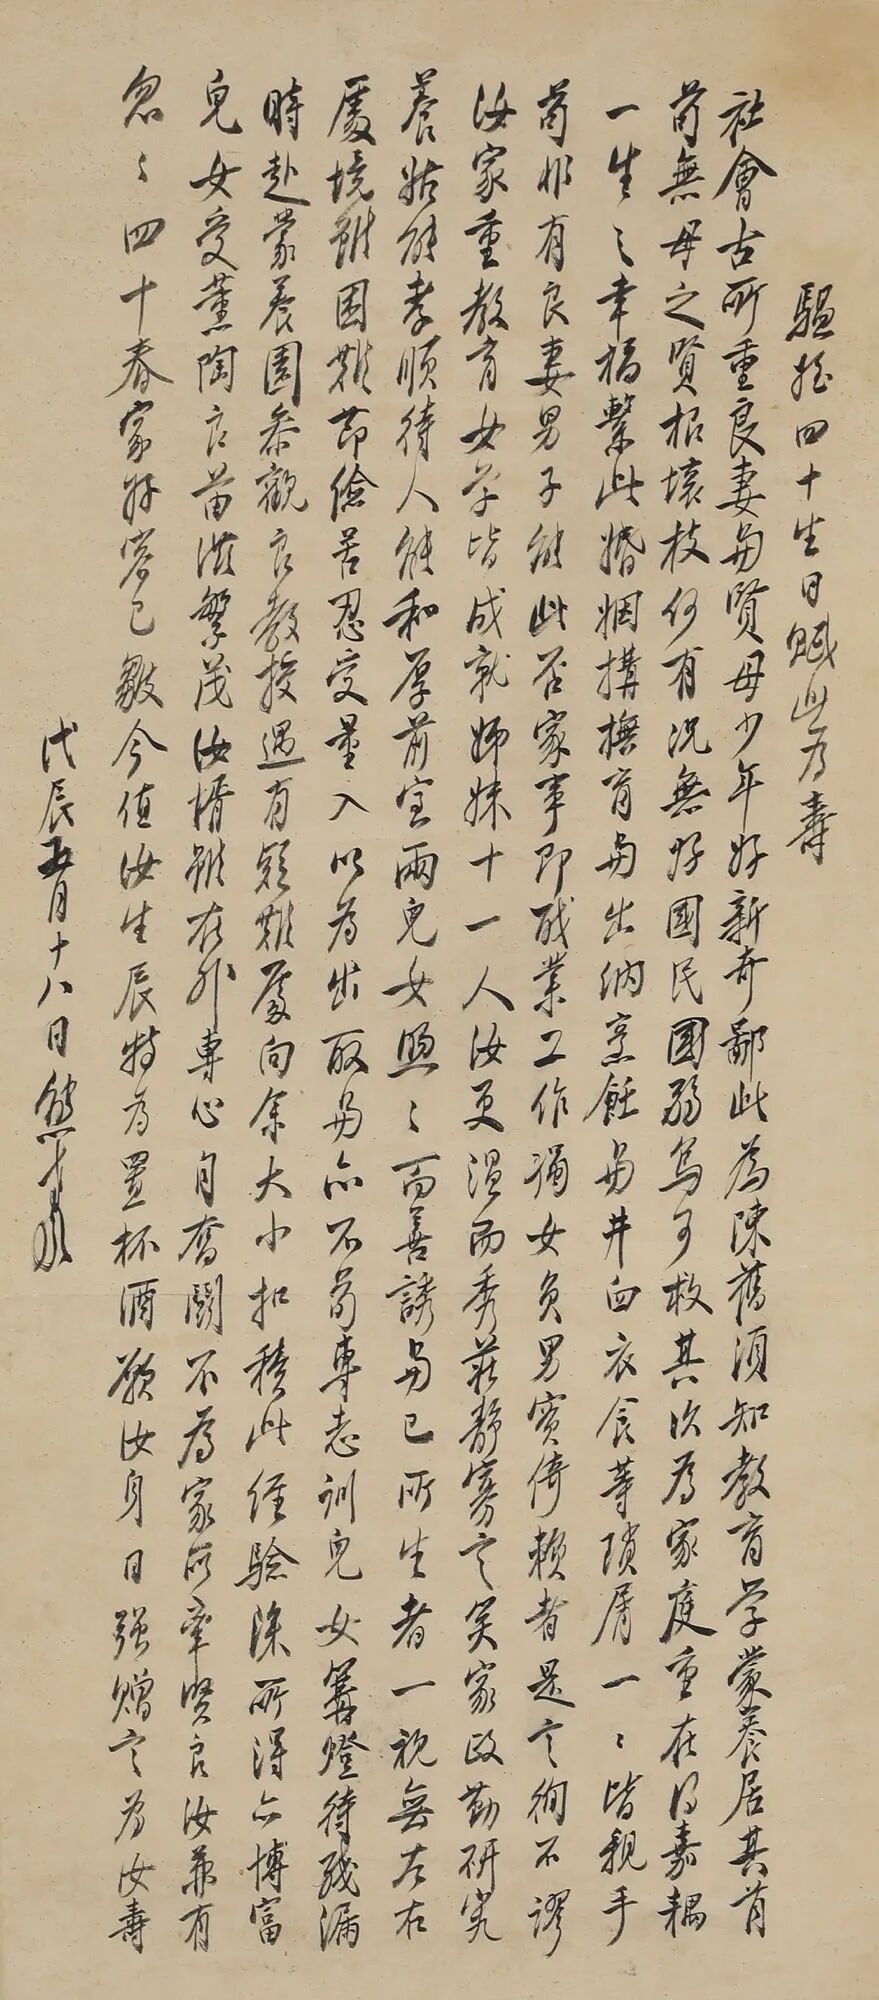 驅姪四十生日賦此為壽
社會古所重良妻與賢母少年好新奇鄙此為陳舊須知教育學蒙養居其首
苟無母之賢根壞枝何有況無好國民國弱烏可救其次為家庭重在得嘉耦
一生之幸福繫此婚姻搆撫育與出納烹飪與井臼衣食等瑣屑一一皆親手
苟非有良妻男子能此否家事即職業工作獨女負男賓倚賴者是言徇不謬
汝家重教育女學皆成就姊妹十一人汝更溫而秀莊靜寡言笑家政勤研究
養姑能孝順待人能和厚前室兩兒女煦煦而善誘與已所生者一視無左右
處境雖困難節儉苦忍受量入以為出取與亦不苟專志訓兒女篝燈待殘漏
時赴蒙養園參觀良教授遇有疑難處向余大小扣積此經驗深所得亦博富
兒女受薰陶良苗滋繁茂汝壻雖在外專心自奮鬪不為家所牽賢良汝兼有
忽忽四十春家好容已皺今值汝生辰特為置杯酒願汝身日強贈言為汝壽
戊辰五月十八日熊